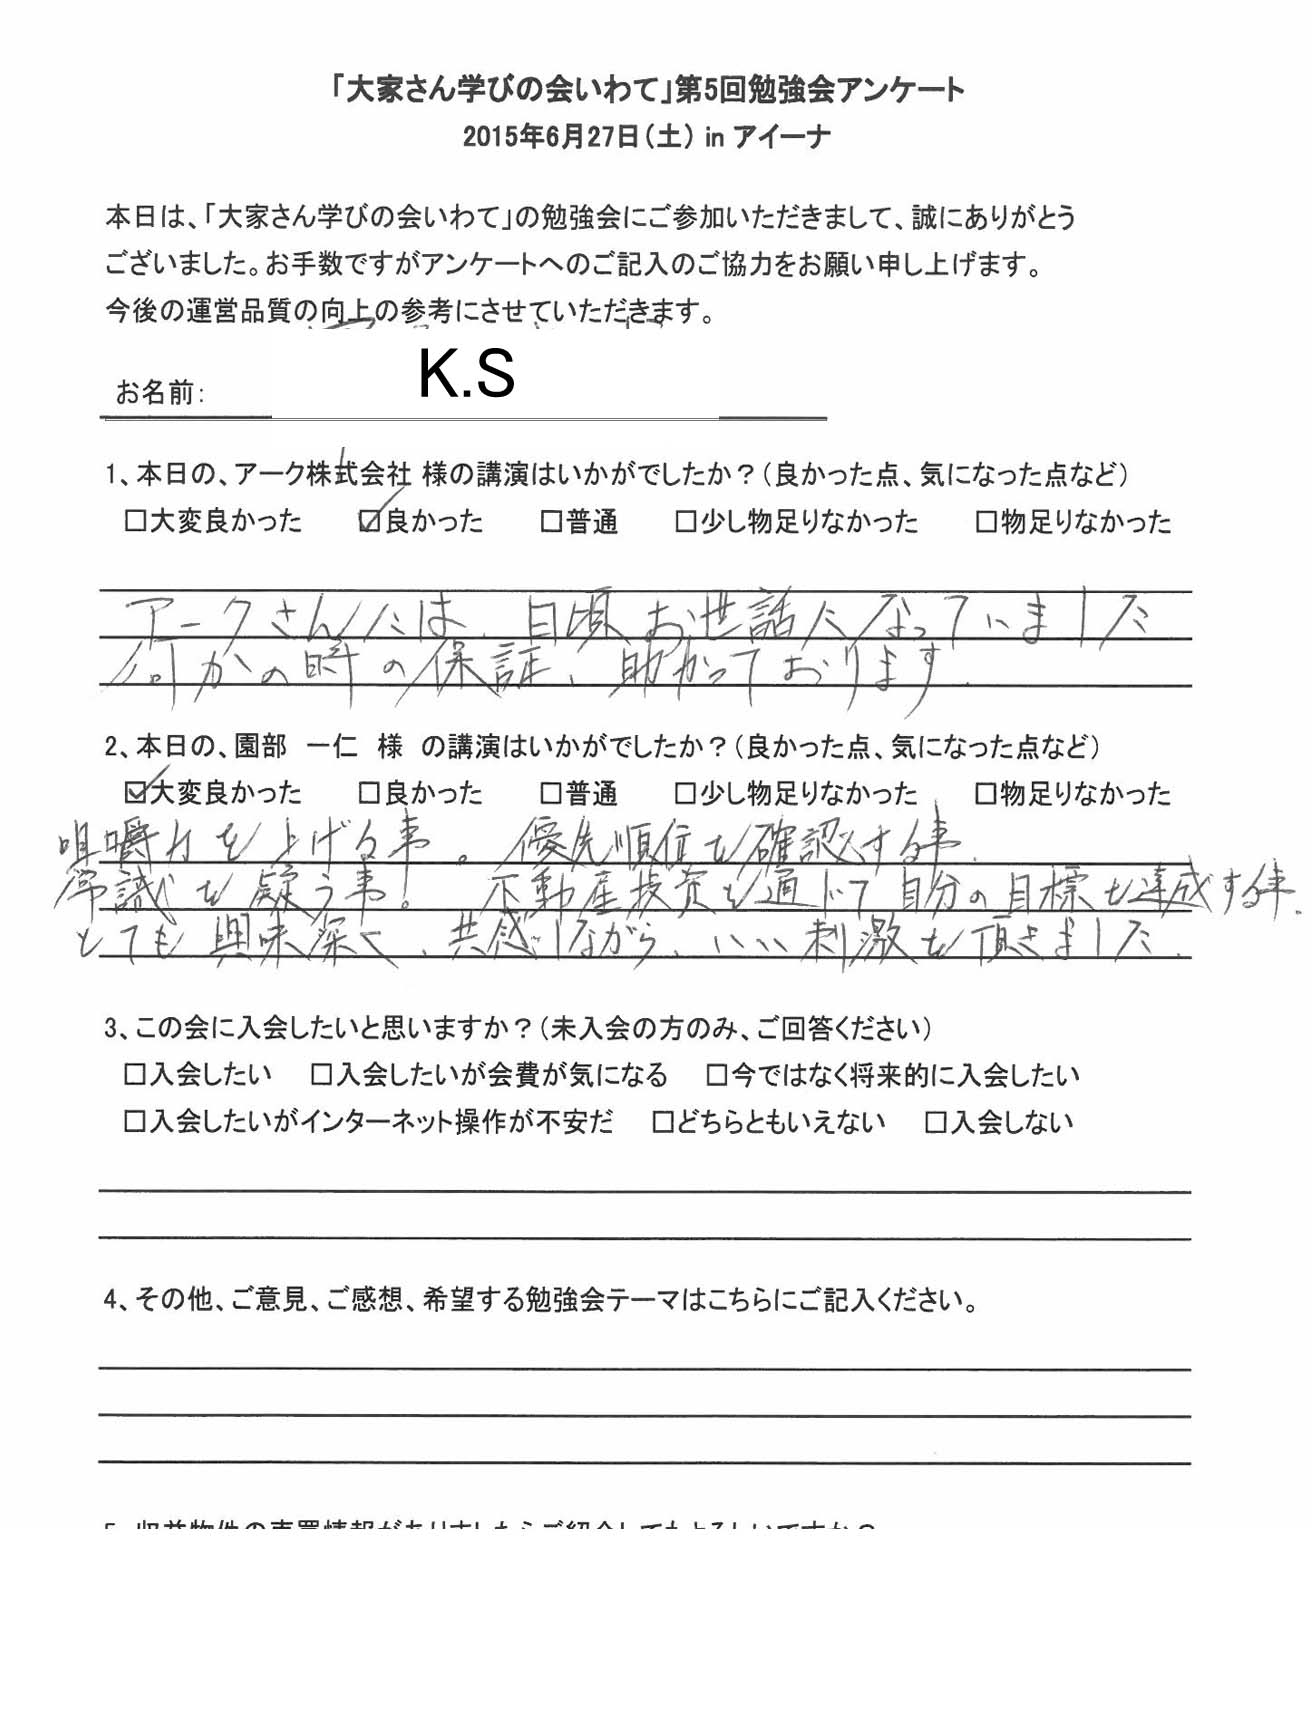 「大家さん学びの会いわて」第5回勉強会アンケート
2015年6月27日(土) in アイーナ
本日は、「大家さん学びの会いわて」の勉強会にご参加いただきまして、誠にありがとう
ございました。お手数ですがアンケートへのご記入のご協力をお願い申し上げます。
今後の運営品質の向上の参考にさせていただきます。
お名前: K.S
1、本日の、アーク株式会社 様の講演はいかがでしたか?(良かった点、気になった点など)
□大変良かった ☑良かった □普通 □少し物足りなかった □物足りなかった
アークさんには、日頃お世話になっていました
何かの時の保証、助かっております。
2、本日の、園部 一仁 様 の講演はいかがでしたか?(良かった点、気になった点など)
☑大変良かった □良かった □普通 □少し物足りなかった □物足りなかった
咀嚼力を上げる事。優先順位を確認する事。
常識を疑う事! 不動産投資を通じて自分の目標を達成する事。
とても興味深く、共感しながら、いい刺激を頂きました。
3、この会に入会したいと思いますか?(未入会の方のみ、ご回答ください)
□入会したい □入会したいが会費が気になる □今ではなく将来的に入会したい
□入会したいがインターネット操作が不安だ □どちらともいえない □入会しない
4、その他、ご意見、ご感想、希望する勉強会テーマはこちらにご記入ください。
5、収益物件の売買情報がありましたらご紹介してもよろしいですか?